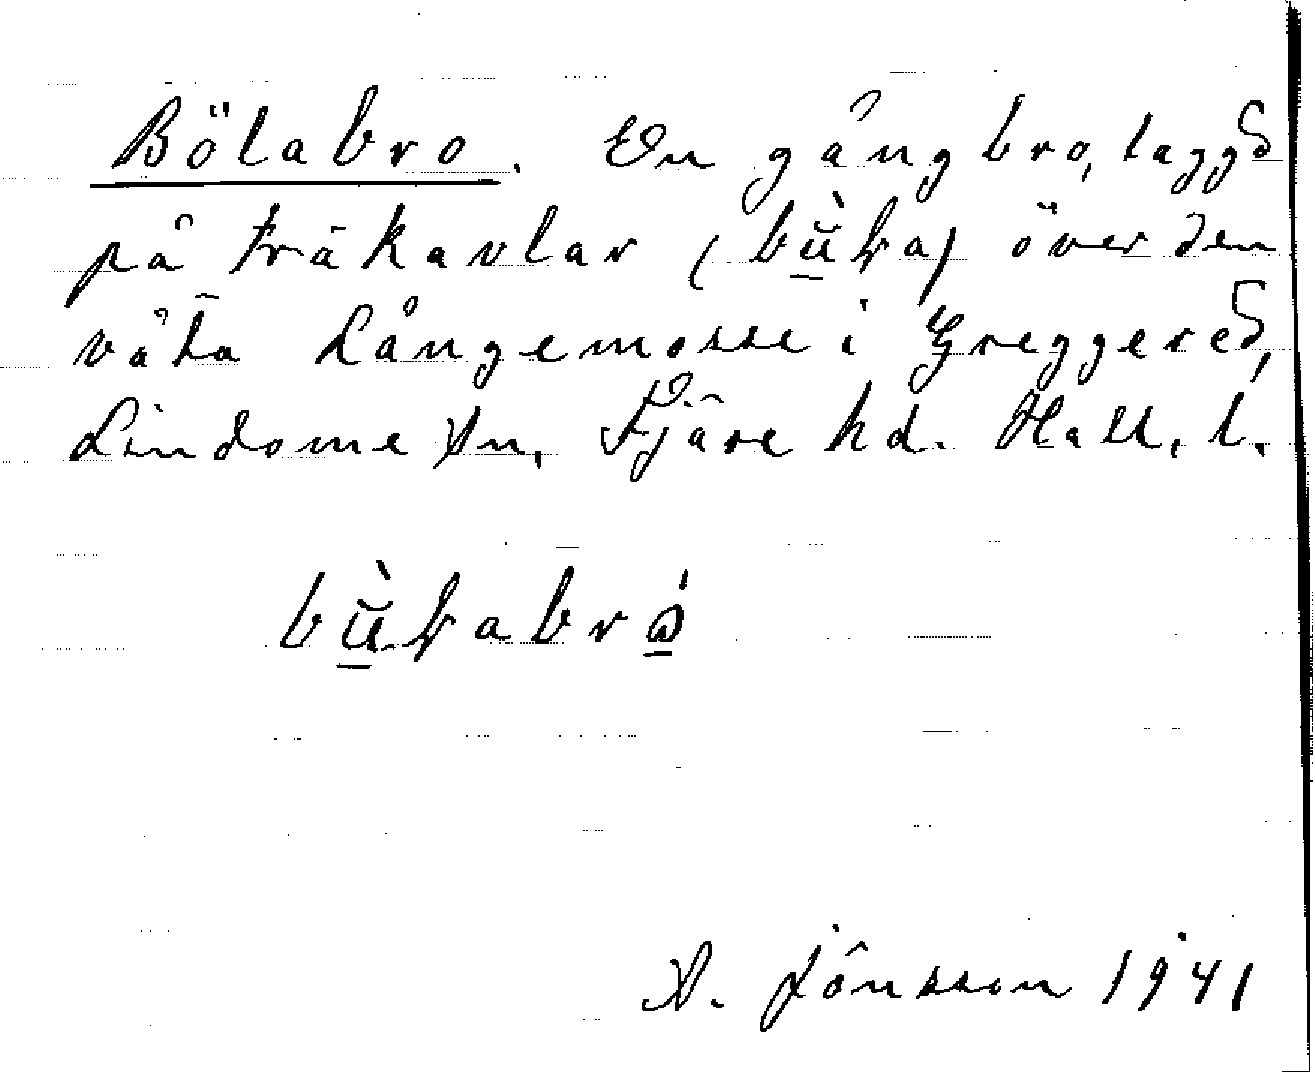 Bölabro. En gångbro, laggd
på träkavlar (bù̲ɫa) över den
våta Långemosse i Greggered,
Lindome sn, Fjäre hd. Hall. l.
bù̲ɫabró̲
A. Jönsson 1941